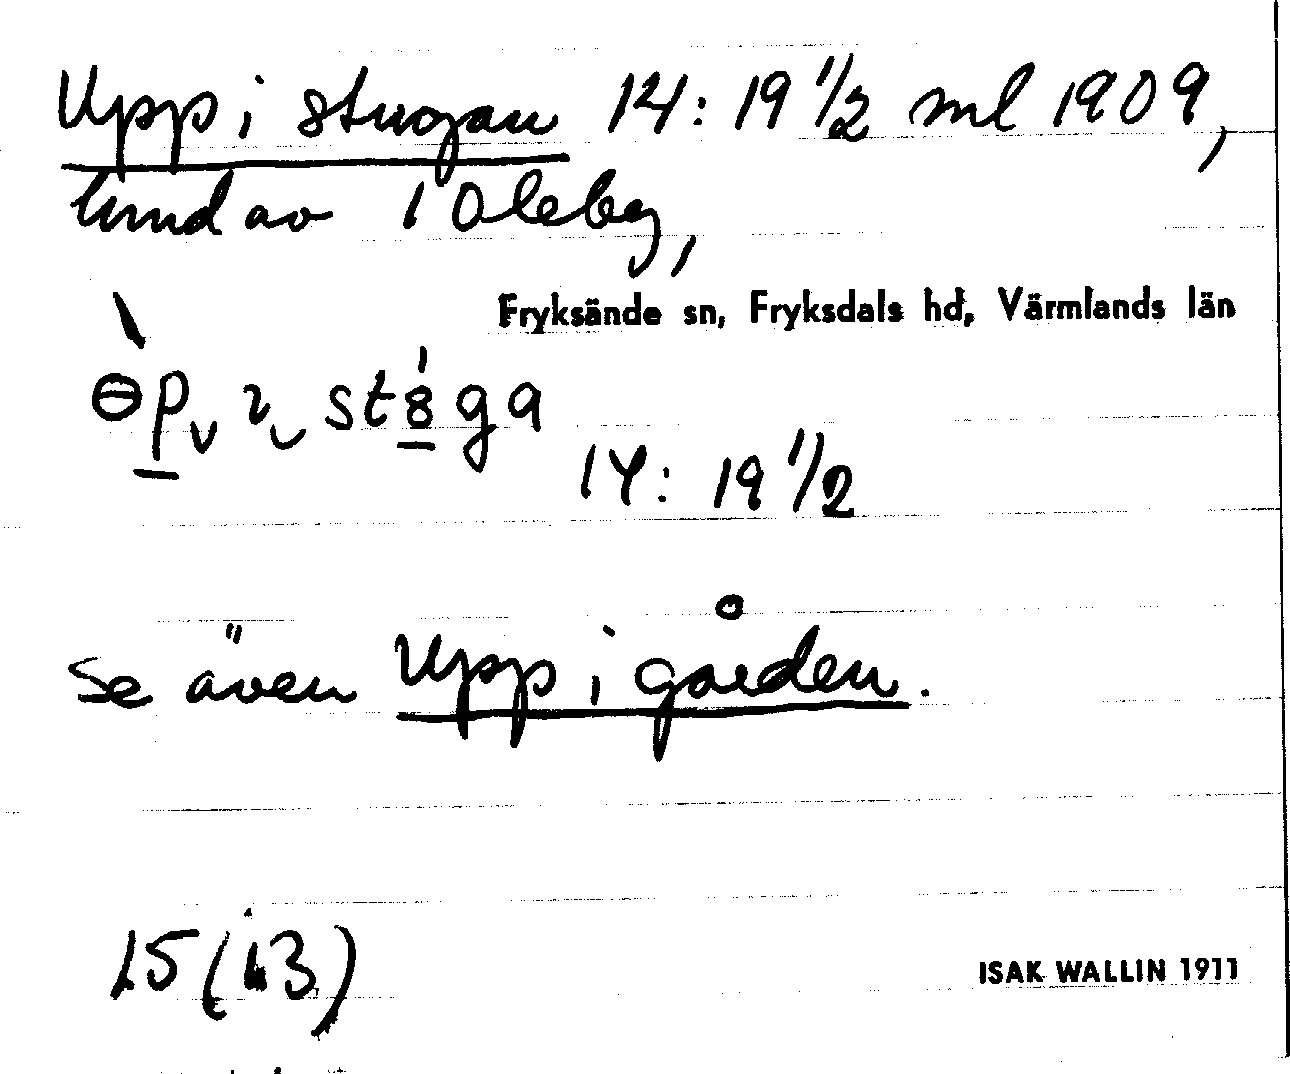 Upp i stugan 14: 19 1/2 ml 1909,
1 Oleby,
Fryksände sn, Fryksdals hd, Värmlands län
14: 19 1/2
Se även Upp i gården.
15 (13)
ISAK WALLIN 1911